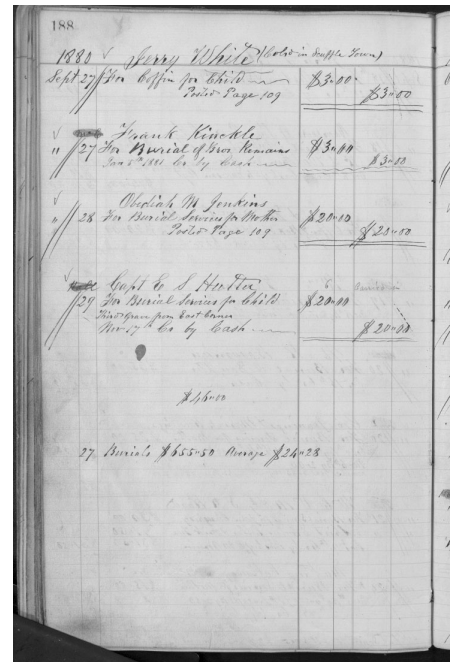 188
1880 Jerry White (Cold in Scuffle Town)
Sept 27 For Coffin for Child $3"00
Posted Page 109 $3"00
Frank Kinckle
" 27 For Burial of Remains $3"00
Jan 5th 1881 Cr by Cash $3"00
Obediah M Jenkins
" 28 For Burial Services for Mother $20"00
Posted Page 109 $20"00
Capt E S Hutter
29 For Burial Services for Child $20"00
Third Grave from East Corner
Nov 17th Cr by Cash $20"00
$46"00
27 Burials $655"50 Average $24"28